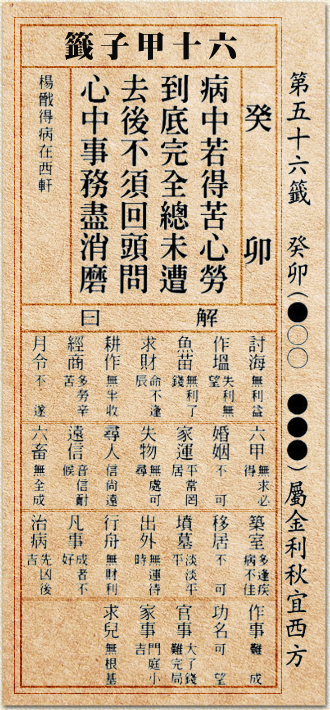 第五十六籤 癸卯(●○○ ●●●)屬金利秋宜西方
六十甲子籤
癸卯
病中若得苦心勞
到底完全總未遭
去後不須回頭問
心中事務盡消磨
楊戩得病在西軒
解曰
討海 無利益
作塭 失利無望
魚苗 無利了錢
求財 命不逢辰
耕作 無半收
經商 多勞辛苦
月令 不遂
六甲 無求必得
婚姻 不可
家運 平常罔居
失物 無處可尋
尋人 信尚遠
遠信 音信耐候
六畜 無全成
築室 多逢疾病不佳
移居 不可
墳墓 淡淡平平
出外 無運待時
行舟 無財利
凡事 成者不好
治病 先凶後吉
作事 難成
功名 可望
官事 大了錢難完局
家事 門庭小吉
求兒 無根基